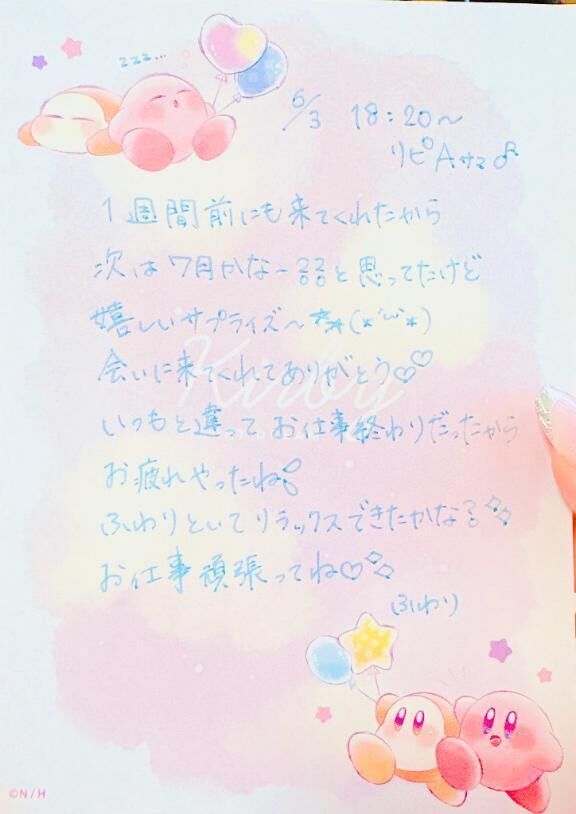 zzz...
6/3 18:20～
リピAサマ♂
1週間前にも来てくれたから
次は7月かな〜と思ってたけど
嬉しいサプライズ〜(*´ω`*)
Kirby
会いに来てくれてありがとう♡♡
いつもと違ってお仕事終わりだったから
お疲れやったね
ふわりといてリラックスできたかな?
お仕事頑張ってね♡
ふわり
©N/H